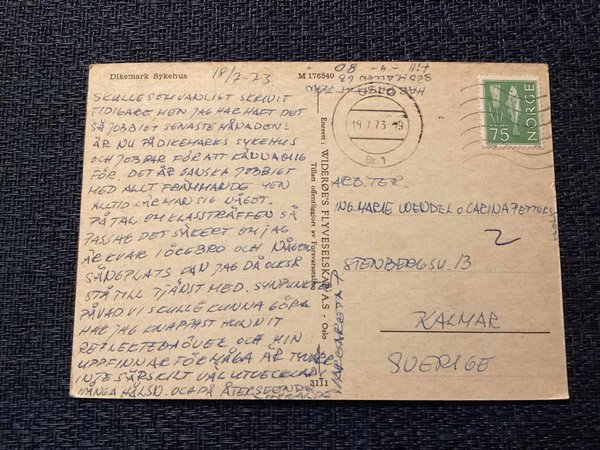 Dikemark Sykehus
18/7-73
M 176540
SKULLE SOM VANLIGT SKRIVIT
TIDIGARE MEN JAG HAR HAFT DET
SÅ JOBBIGT SENASTE MÅNADEN.
ÄR NU PÅ DIKEMARKS SYKEHUS
OCH JOBBAR FÖR ATT KÄNNA MIG
FÖR. DET ÄR GANSKA JOBBIGT
MED ALLT FRÄMMANDE MEN
ALLTID LÄR MAN SIG NÅGOT.
PÅ TAL OM KLASSTRÄFFEN SÅ
PASSAR DET SÄKERT OM JAG
ÄR KVAR I ÖREBRO OCH NÅGON
SÄNGPLATS KAN JAG DÅ OCKSÅ
STÅ TILL TJÄNST MED. SYNPUNKTER
PÅ VAD VI SKULLE KUNNA GÖRA
HAR JAG KNAPPAST HUNNIT
REFLEKTERA ÖVER OCH MIN
UPPFINNARFÖRMÅGA ÄR TYVÄRR
INTE SÄRSKILT VÄL UTVECKLAD
MÅNGA HÄLSN. OCH PÅ ÅTERSEENDE
MARGARETA P
Enerett: WIDERØE'S FLYVESELSKAP A.S - Oslo
Tillatt offentliggjort av Forsvarsstaben
3111
OSLO
19.7.73-19
Br. 1
NORGE
75
ARB.TER.
ING.MARIE WENDEL o CARINA PETTERS
STENBERGSV. 13
KALMAR
SVERIGE